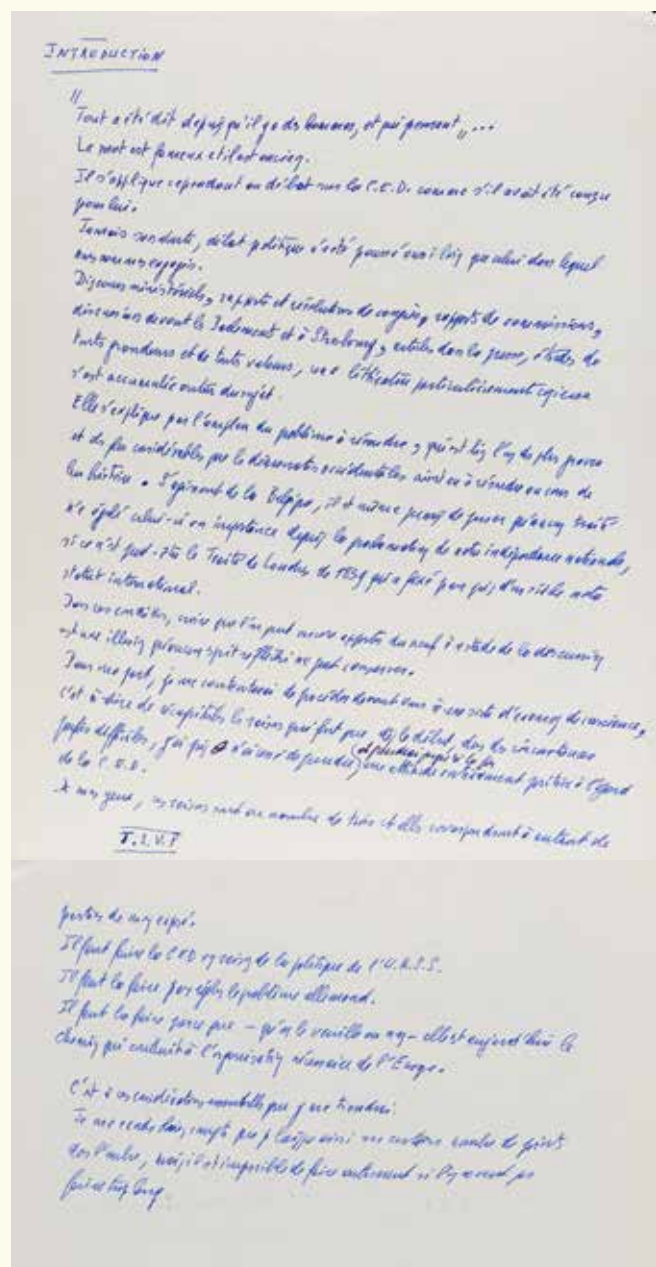 INTRODUCTION
" Tout a été dit depuis qu'il y a des hommes, et qui pensent " ...
Le mot est fameux et il est ancien.
Il s'applique cependant au débat sur la C.E.D. comme s'il avait été conçu
pour lui.
Jamais sans doute, débat politique n'a été poussé aussi loin que celui dans lequel
nous sommes engagés.
Discours ministériels, rapports et résolutions de congrès, rapports de commissions,
discussions devant le Parlement et à Strasbourg, articles dans la presse, études de
toutes grandeurs et de toutes valeurs, une littérature particulièrement copieuse
s'est accumulée autour du sujet.
Elle s'explique par l'ampleur du problème à résoudre, qui est l'un des plus graves
et des plus considérables que les démocraties occidentales aient eu à résoudre au cours de
leur histoire. S'agissant de la Belgique, il est même permis de penser qu'aucun traité
n'a égalé celui-ci en importance depuis la proclamation de notre indépendance nationale,
si ce n'est peut-être le Traité de Londres de 1839 qui a fixé pour plus d'un siècle notre
statut international.
Dans ces conditions, croire que l'on peut encore apporter du neuf à ce stade de la discussion
est une illusion qu'aucun esprit réfléchi ne peut conserver.
Pour ma part, je me contenterai de procéder devant vous à une sorte d'examen de conscience,
c'est à dire de récapituler les raisons qui font que, dès le début, dans des circonstances
parfois difficiles, j'ai pris une attitude entièrement positive à l'égard
de la C.E.D.
A mes yeux, ces raisons sont au nombre de trois et elles correspondent à autant de
T.S.V.P
parties de mon exposé.
Il faut faire la CED en raison de la politique de l'U.R.S.S.
Il faut la faire pour régler le problème allemand.
Il faut la faire parce que - qu'on le veuille ou non - elle est aujourd'hui le
chemin qui conduit à l'organisation nécessaire de l'Europe.
C'est à ces considérations essentielles que je me tiendrai.
Je me rends bien compte que je laisse ainsi un certain nombre de points
dans l'ombre, mais il est impossible de faire autrement si l'on ne veut pas
faire trop long.